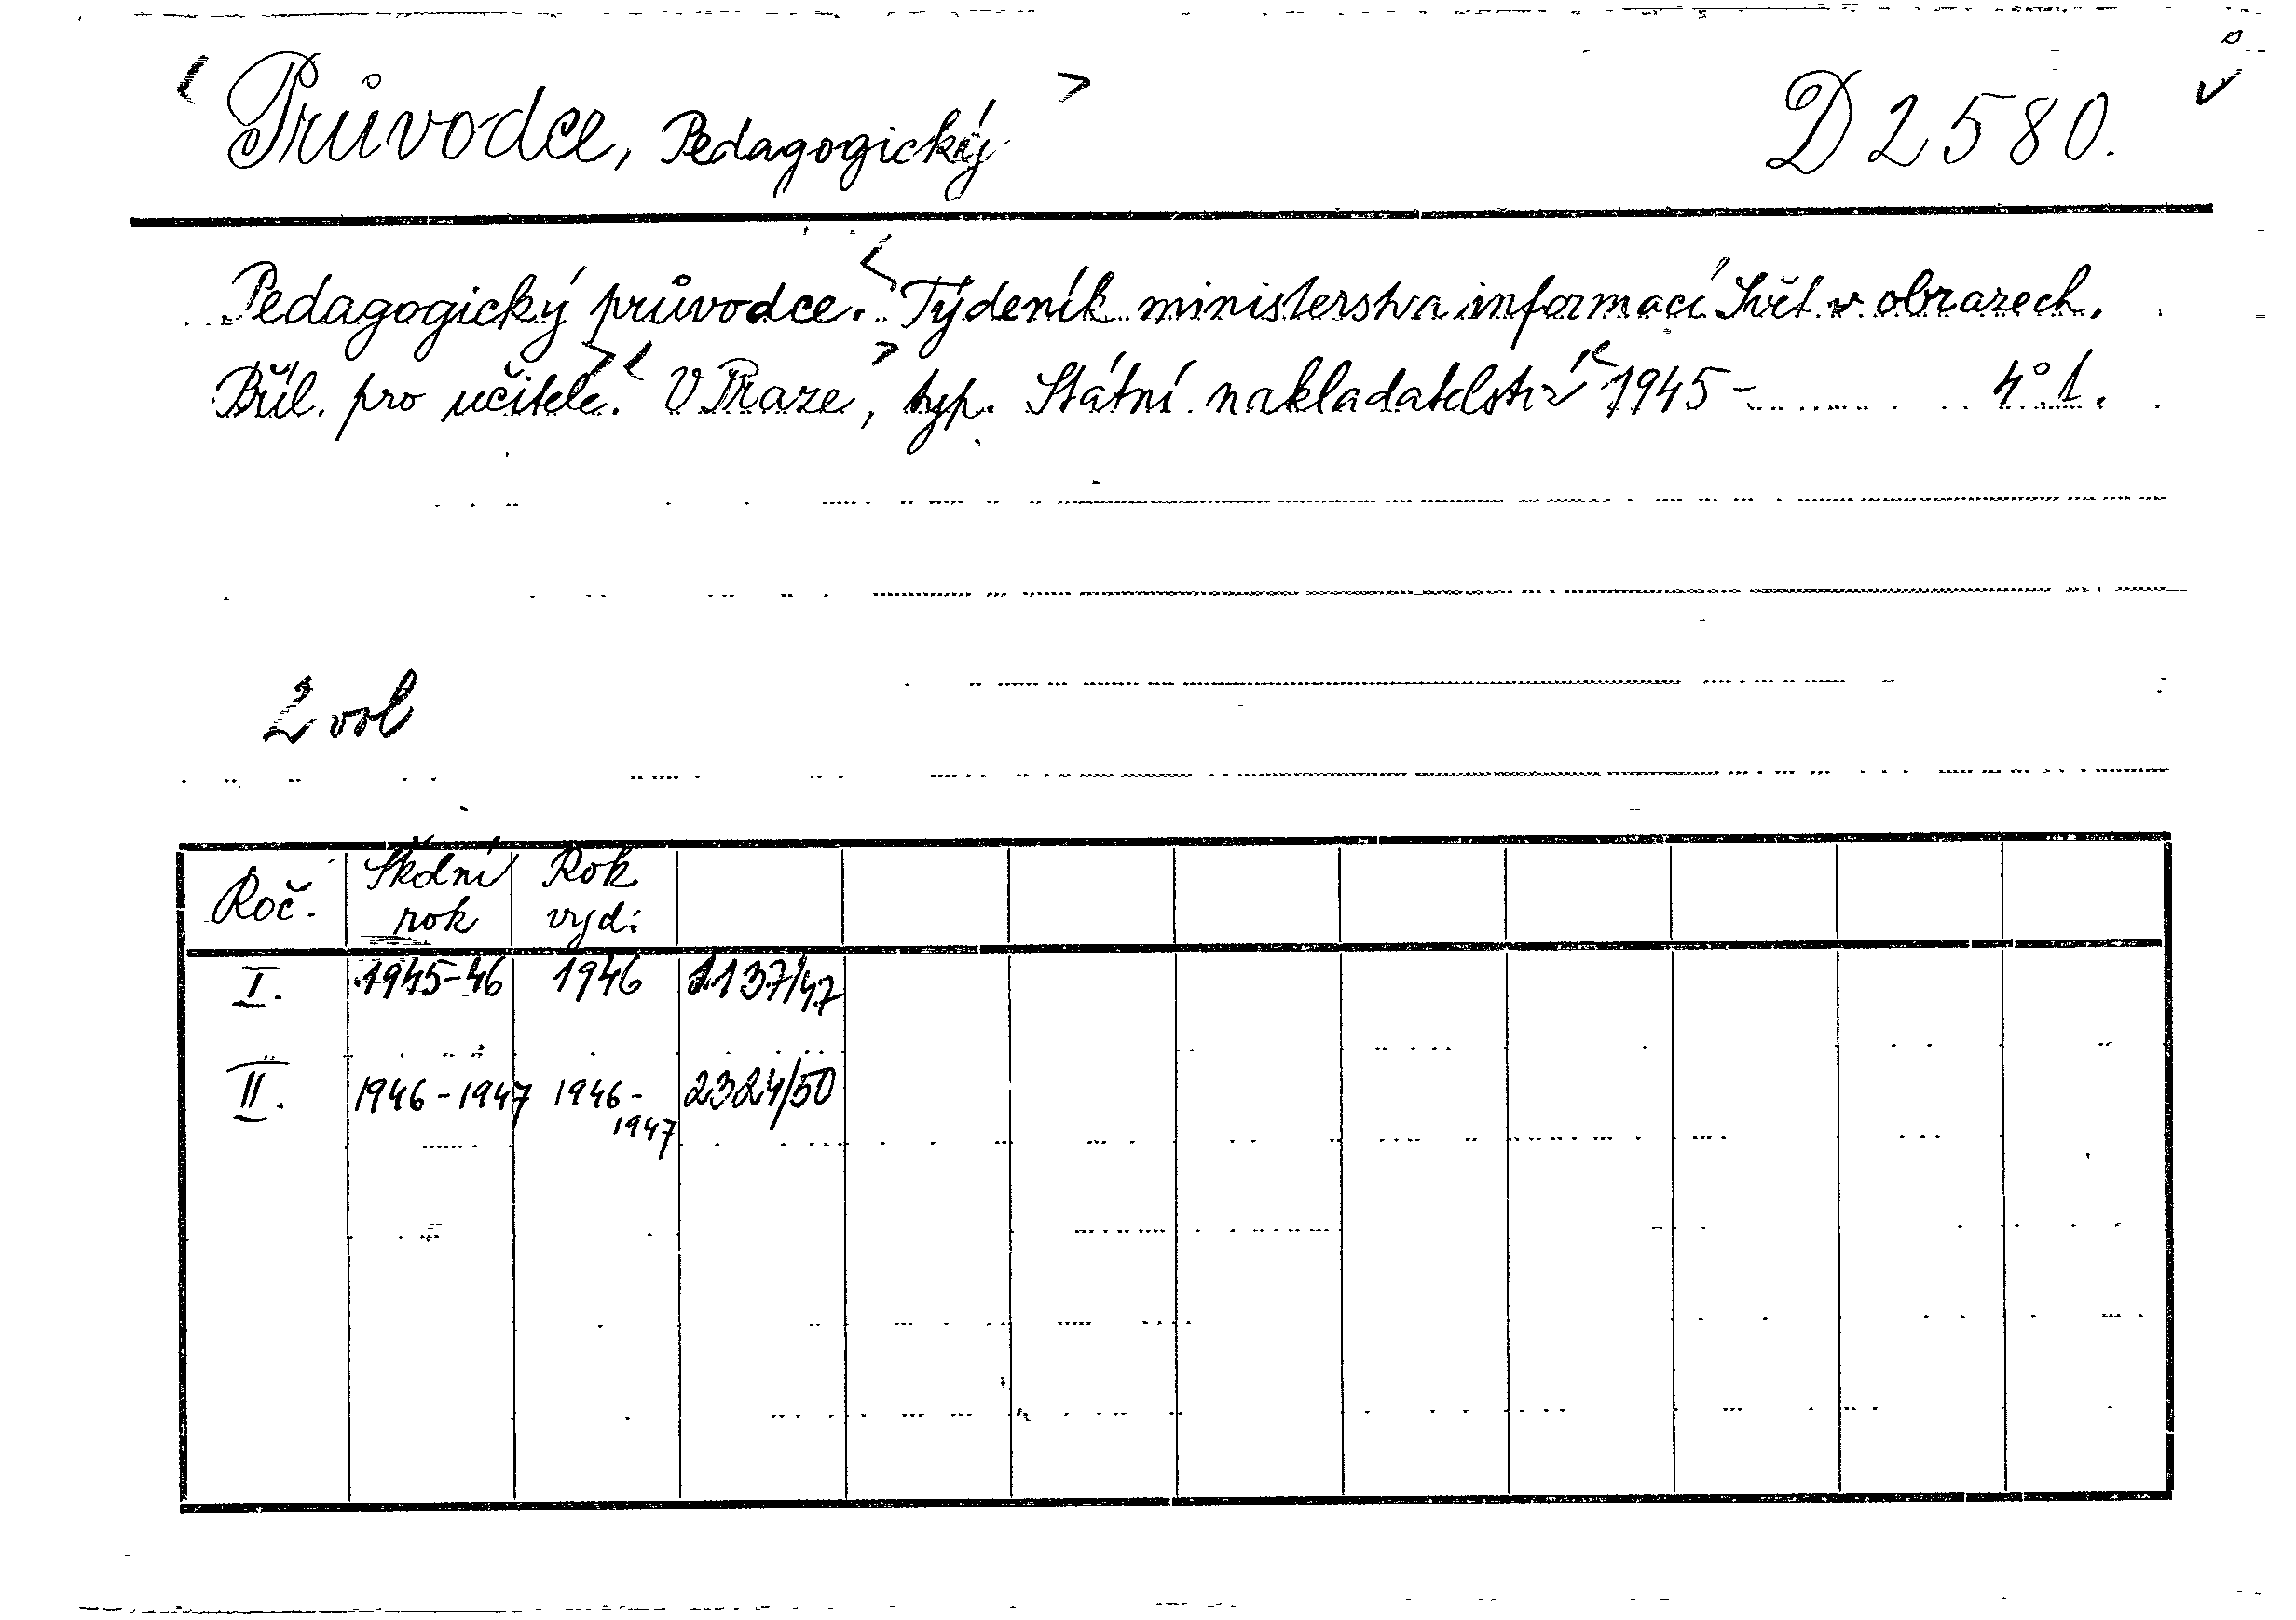 Průvodce, Pedagogický D 2580.
Pedagogický průvodce. Týdeník ministerstva informací Svět v obrazech.
Příl. pro učitele. V Praze, typ. Státní nakladatelství 1945 - 4° 1.
2 vol
Roč. Školní rok Rok vyd.
I. 1945-46 1946 1137/47
II. 1946-1947 1946-1947 2324/50